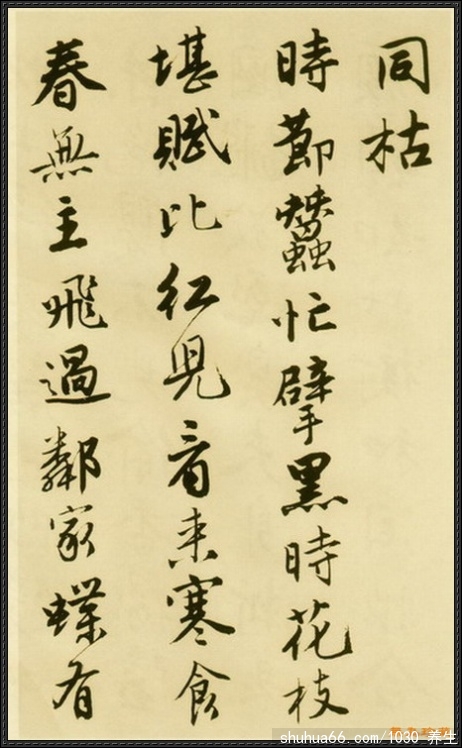 同枯
時節蠶忙擘黑時花枝
堪賦比紅兒看來寒食
春無主飛過鄰家蝶有
shuhua66.com/1030 养生